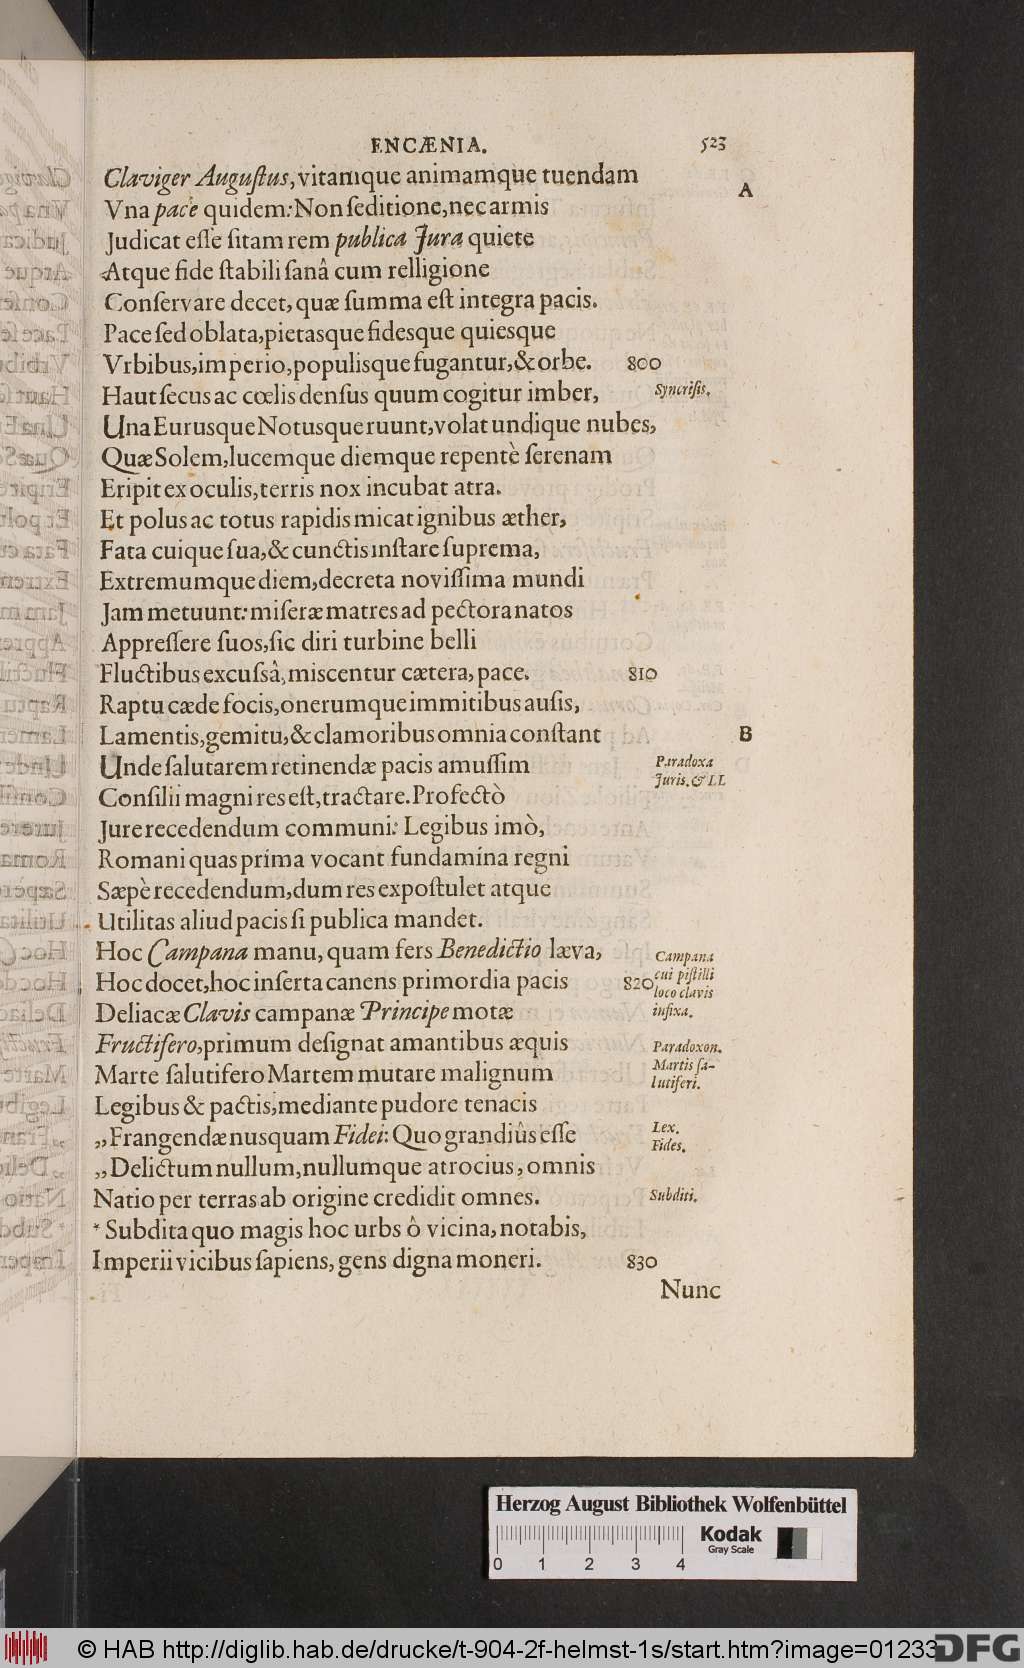 ENCÆNIA. 523
Claviger Auguſtus, vitamque animamque tuendam
A
Vna pace quidem: Non ſeditione, nec armis
Judicat eſſe ſitam rem publica Jura quiete
Atque fide ſtabili ſanâ cum relligione
Conſervare decet, quæ ſumma eſt integra pacis.
Pace ſed oblata, pietasque fidesque quiesque
Vrbibus, imperio, populisque fugantur, & orbe. 800
Haut ſecus ac cœlis denſus quum cogitur imber, Syncriſis.
Una Eurusque Notusque ruunt, volat undique nubes,
Quæ Solem, lucemque diemque repentè ſerenam
Eripit ex oculis, terris nox incubat atra.
Et polus ac totus rapidis micat ignibus æther,
Fata cuique ſua, & cunctis inſtare ſuprema,
Extremumque diem, decreta noviſſima mundi
Jam metuunt: miſeræ matres ad pectora natos
Appreſſere ſuos, ſic diri turbine belli
Fluctibus excuſsâ, miscentur cætera, pace. 810
Raptu cæde focis, onerumque immitibus auſis,
Lamentis, gemitu, & clamoribus omnia conſtant
B
Unde ſalutarem retinendæ pacis amuſſim Paradoxa
Juris. & LL
Conſilii magni res eſt, tractare. Profectò
Jure recedendum communi: Legibus imò,
Romani quas príma vocant fundamína regni
Sæpè recedendum, dum res expoſtulet atque
Utilitas aliud pacis ſi publica mandet.
Hoc Campana manu, quam fers Benedictio læva, Campana
cui piſtilli
Hoc docet, hoc inſerta canens primordia pacis 820
loco clavis
Deliacæ Clavis campanæ Principe motæ infixa.
Fructifero, primum deſignat amantibus æquis Paradoxon.
Marte ſalutifero Martem mutare malignum Martis ſa-
lutiferi.
Legibus & pactis, mediante pudore tenacis
„Frangendæ nusquam Fidei: Quo grandiûs eſſe Lex.
Fides.
„Delictum nullum, nullumque atrocius, omnis
Natio per terras ab origine credidit omnes. Subditi.
* Subdita quo magis hoc urbs ô vicina, notabis,
Imperii vicibus ſapiens, gens digna moneri. 830
Nunc
Herzog August Bibliothek Wolfenbüttel
0 1 2 3 4
Kodak
Gray Scale
© HAB http://diglib.hab.de/drucke/t-904-2f-helmst-1s/start.htm?image=01233
DFG